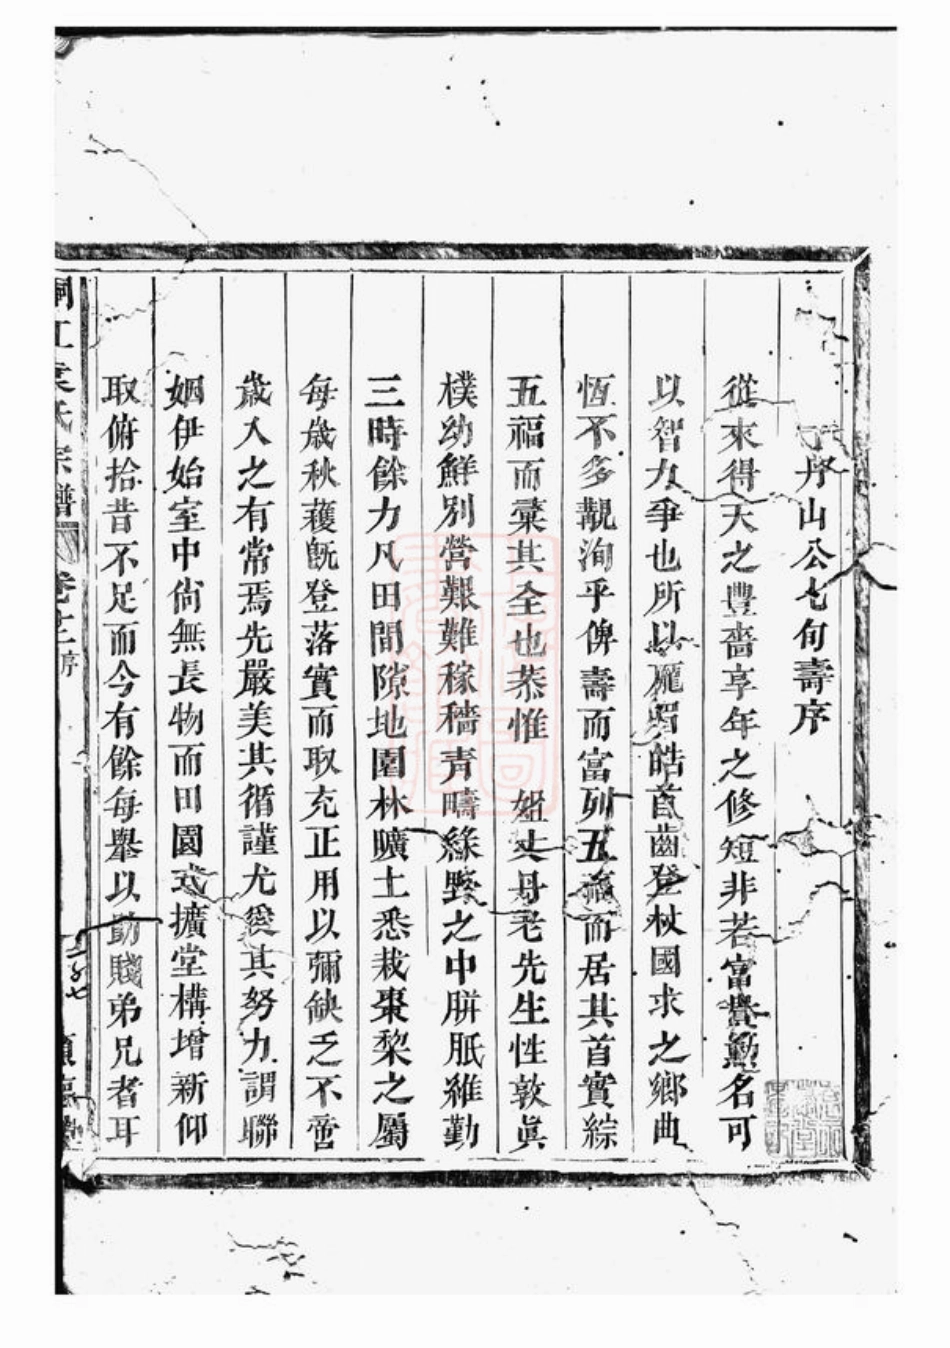 丹山公七旬壽序
從來得天之豐嗇享年之修短非若富貴勳名可
以智力爭也所以龐眉皓首齒登杖國求之鄉曲
恆不多覯洵乎俾壽而富列五福而居其首實綜
五福而彙其全也恭惟 姻丈丹老先生性敦眞
樸幼鮮別營艱難稼穡靑疇綠壄之中胼胝維勤
三時餘力凡田間隙地園林曠土悉栽棗棃之屬
每歲秋穫旣登落實而取充正用以彌缺乏不啻
歲入之有常焉先嚴美其循謹尤愛其努力謂聯
姻伊始室中尙無長物而田園式擴堂構增新仰
取俯拾昔不足而今有餘每舉以勖賤弟兄者耳
江袁氏宗譜 卷 序